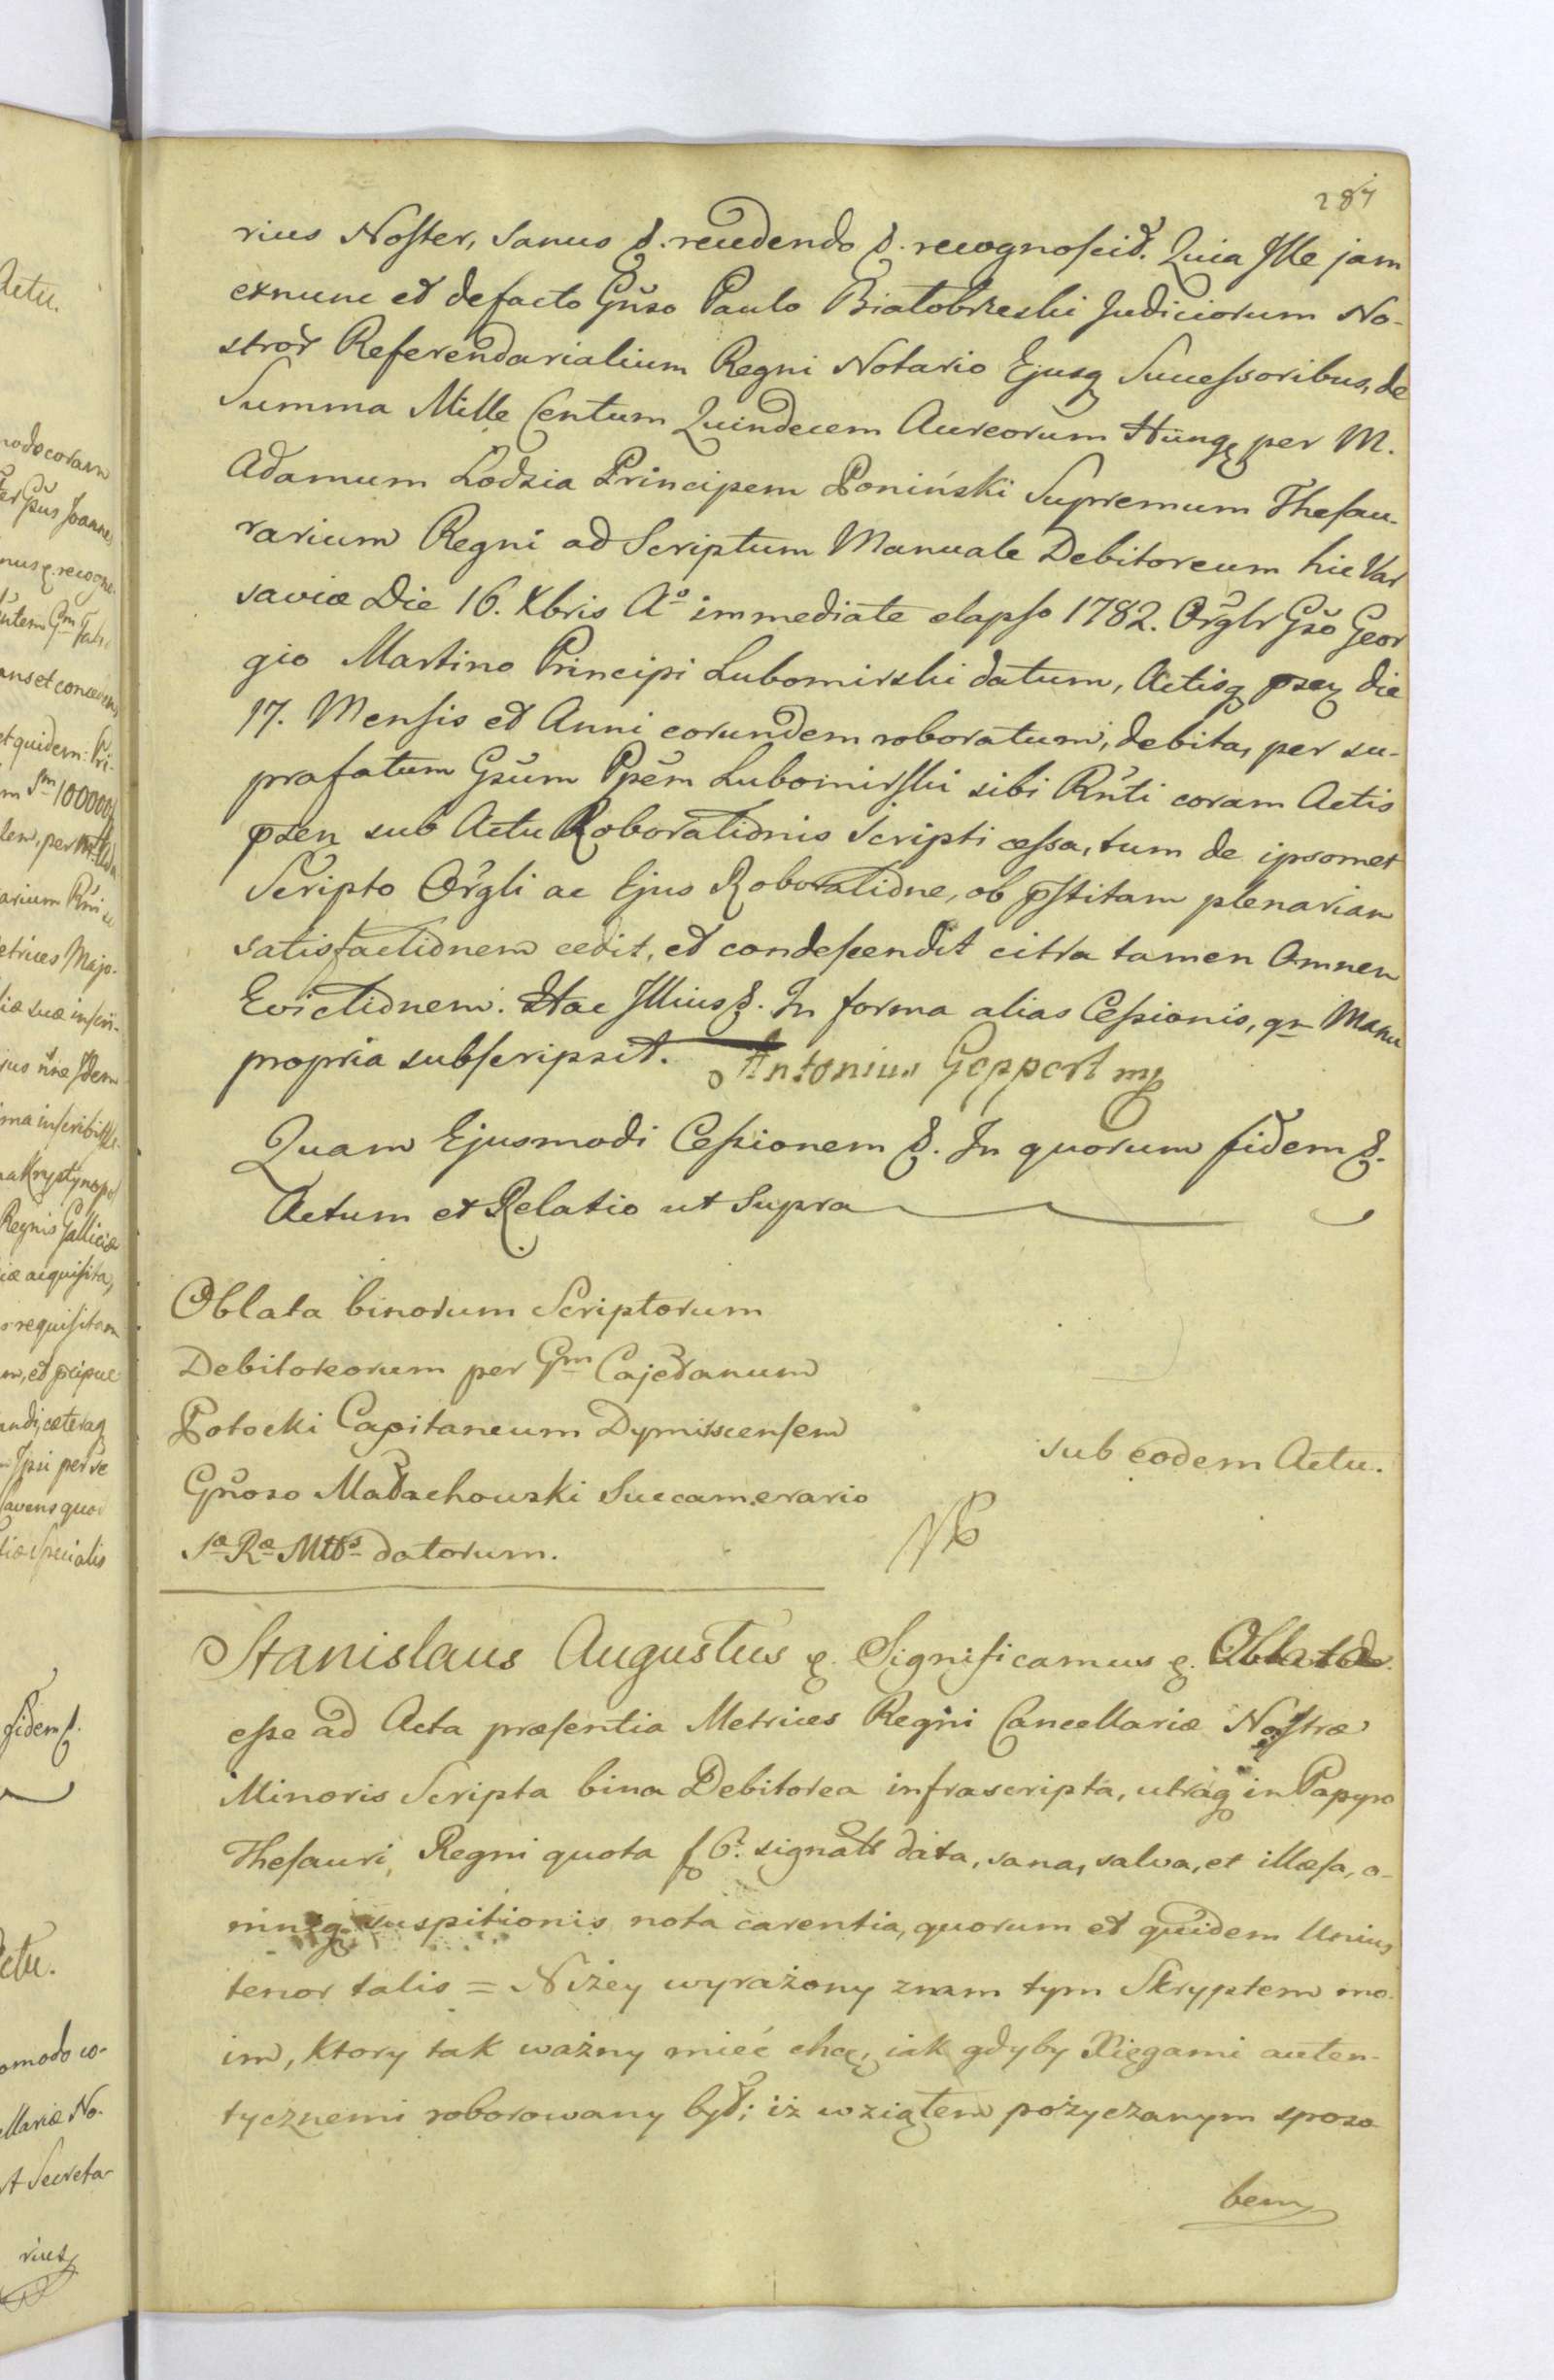 287
rius Noster, sanus &. recedendo &. recognoscit. Quia Ille jam
exnunc et defacto Gnso Paulo Białobrzeski Judiciorum No-
stror Referendarialium Regni Notario Ejusq Successoribus, de
Summa Mille Centum Quindecem Aureorum Hungq per M.
Adamum Łodzia Principem Poniński Supremum Thesau-
rarium Regni ad Scriptum Manuale Debitoreum hic Var
saviæ Die 16. Xbris Aº immediate elapso 1782. Orglr Gso Geor
gio Martino Principi Lubomirski datum, Actisq psen die
17. Mensis et Anni eorundem roboratum, debita, per su-
prafatum Gsum Ppem Lubomirski sibi Rnti coram Actis
psen sub Actu Roborationis Scripti cessa, tum de ipsomet
Scripto Orgli ac Ejus Roboratione, ob pstitam plenariam
satisfactionem cedit, et condescendit citra tamen Omnem
Evictionem. Hac Illius &. In forma alias Cessionis, qm Manu
propria subscripsit. Antonius Geppert mp
Quam Ejusmodi Cessionem &. In quorum fidem &.
Actum et Relatio ut Supra
Oblata binorum Scriptorum
Debitoreorum per Gm Cajetanum
Potocki Capitaneum Dymiscensem
Gnoso Małachowski Succamerario
Sæ Ræ Mttis datorum.
sub eodem Actu.
Stanislaus Augustus &. Significamus &. Oblata
esse ad Acta præsentia Metrices Regni Cancellariæ Nostræ
Minoris Scripta bina Debitorea infrascripta, utraq in Papyro
Thesauri Regni quota f 6. signata data, sana, salva, et illæsa, o-
mniq suspitionis nota carentia, quorum et quidem Unius
tenor talis = Niżey wyrażony znam tym Skryptem mo-
im, ktory tak ważny mieć chcę, iak gdyby Xięgami auten-
tycznemi roborowany był; iż wziąłem pożyczanym sposo-
bem